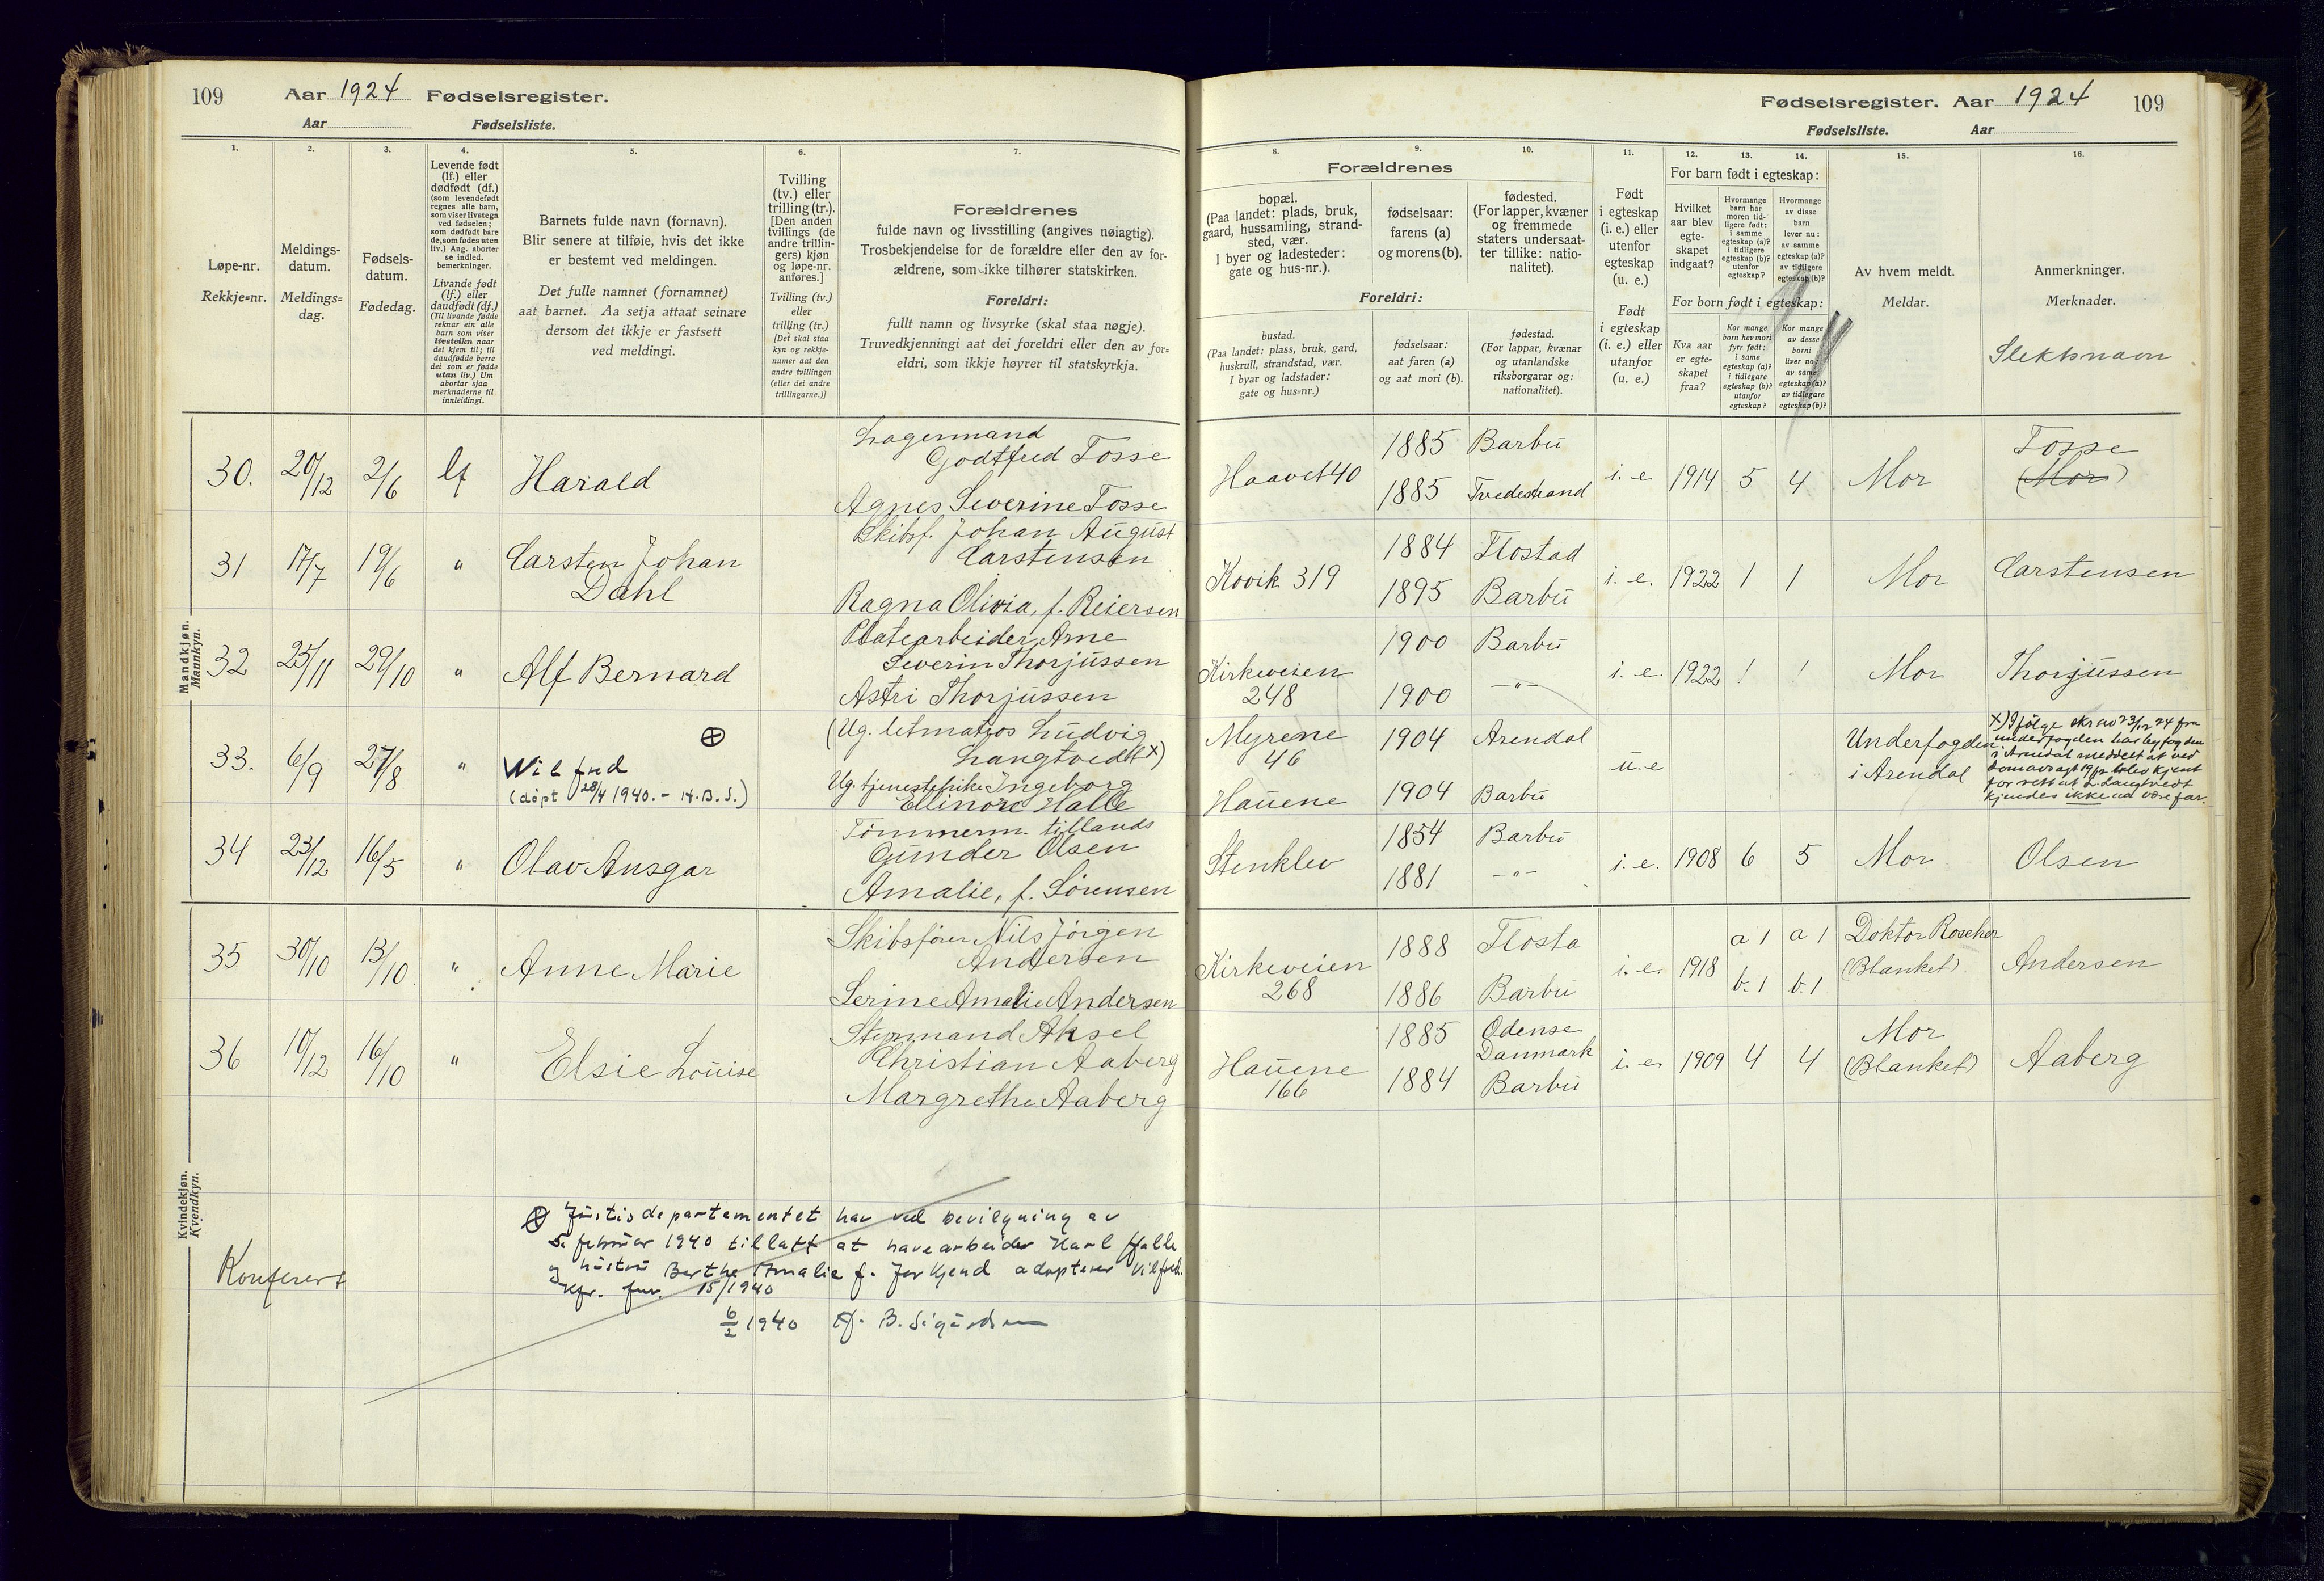 109 Aar 1924 Fødselsregister.
Aar Fødselsliste.
Fødselsregister. Aar 1924 109
Fødselsliste. Aar
1. 2. 3. 4. 5. 6. 7.
Løpe-nr.
Rekkje=nr.
Meldings-
datum.
Meldings=
dag.
Fødsels-
datum.
Fødedag.
Levende født
(lf.) eller
dødfødt (df.)
(som levendefødt
regnes alle barn,
som viser livstegn
ved fødselen;
som dødfødt bare
de, som fødes uten
liv.) Ang. aborter
se indled.
bemerkninger.
Livande født
(lf.) eller
daudfødt (df.)
(Til livande fødde
reknar ein alle
barn som viser
livsteikn naar
dei kjem til; til
daudfødde berre
dei som er fødde
utan liv.) Um
abortar sjaa
merknaderne til
innleidingi.
Barnets fulde navn (fornavn).
Blir senere at tilføie, hvis det ikke
er bestemt ved meldingen.
Det fulle namnet (fornamnet)
aat barnet. Aa setja attaat seinare
dersom det ikkje er fastsett
ved meldingi.
Tvilling
(tv.) eller
trilling (tr.).
[Den anden
tvillings (de
andre trillin-
gers) kjøn
og løpe-nr.
anføres.]
Tvilling (tv.)
eller
trilling (tr.)
[Dei skal staa
kyn og rekkje-
numer aat den
andre tvillingen
(eller dei andre
trillingarne.)]
Forældrenes
fulde navn og livsstilling (angives nøiagtig).
Trosbekjendelse for de forældre eller den av for-
ældrene, som ikke tilhører statskirken.
Foreldri:
fullt namn og livsyrke (skal staa nøgje).
Truvedkjenningi aat dei foreldri eller den av for=
eldri, som ikkje høyrer til statskyrkja.
8. 9. 10. 11. 12. 13. 14. 15. 16.
Forældrenes
bopæl.
(Paa landet: plads, bruk,
gaard, hussamling, strand-
sted, vær.
I byer og ladesteder:
gate og hus-nr.).
fødselsaar:
farens (a)
og morens (b).
fødested.
(For lapper, kvæner
og fremmede
staters undersaat-
ter tillike: natio-
nalitet).
Foreldri:
bustad.
(Paa landet: plass, bruk, gard,
huskrull, strandstad, vær.
I byar og ladstader:
gate og hus=nr.)
fødselsaar:
aat faren (a)
og aat mori (b).
fødestad.
(For lappar, kvænar
og utanlandske
riksborgarar og:
nationalitet).
Født
i egteskap
(i. e.) eller
utenfor
egteskap
(u. e.)
Født
i egteskap
(i. e.) eller
utanfor
(u. e.)
For barn født i egteskap:
Hvilket
aar blev
egte-
skapet
indgaat?
Hvormange
barn har
moren tid-
ligere født:
i samme
egteskap (a)?
i tidligere
egteskap (b)?
utenfor
egteskap?
Hvormange
av disse
barn
lever nu:
av samme
egteskap (a)?
av tidligere
egteskap (b)?
For born født i egteskap:
Kva aar
er egte=
skapet
fraa?
Kor mange
born hev mori
fyrr født:
i same
egteskap (a)?
i tidlegare
egteskap (b)?
utanfor
egteskap?
Kor mange
av desse
borni
liver no:
av same
egteskap (a)?
av tidlegare
egteskap (b)?
Av hvem meldt.
Meldar.
Anmerkninger.
Merknader.
Slektsnavn
Mandkjøn.
Mannkyn.
30. 20/12 2/6 lf Harald
Lagermand
Godtfred Tosse
Agnes Severine Tosse
Haavet 40 1885 Barbu
1885 Tvedestrand
i. e. 1914 5 4 Mor Tosse
(Mor)
31 17/7 19/6 " Carsten Johan
Dahl
Skibsf. Johan August
Carstensen
Ragna Olivia, f. Reiersen
Kovik 319 1884 Flostad
1895 Barbu
i. e. 1922 1 1 Mor Carstensen
32 25/11 29/10 " Alf Bernard
Platearbeider Arne
Severin Thorjussen
Astri Thorjussen
Kirkeveien
248
1900 Barbu
1900 —"—
i. e. 1922 1 1 Mor Thorjussen
33. 6/9 27/8 " Wilfred
(døpt 28/4 1940. - H. B. S.)
(Ug. letmatros Ludvig
Langtvedt x)
Ug. tjenestepike Ingeborg
Ellinore Halle
Myrene
46
Hauene
1904 Arendal
1904 Barbu
u. e
Underfogden
i Arendal
x) Ifølge skr av 23/12 24 fra
underfogden har byfogden
i Arendal meddelt at ved
domavsagt 19/12 blev kjent
for rett at L. Langtvedt
kjendes ikke aa være far.
34 23/12 16/5 " Olav Ansgar
Tømmerm. tillands
Gunder Olsen
Amalie, f. Sørensen
Stenklev 1854 Barbu
1881 —"—
i. e. 1908 6 5 Mor Olsen
Kvindekjøn.
Kvendkyn.
35 30/10 13/10 " Anne Marie
Skibsfører Nils Jörgen
Andersen
Serine Amalie Andersen
Kirkeveien
268
1888 Flosta
1886 Barbu
i. e. 1918 a 1 a 1
b. 1 b. 1
Doktor Roscher
(Blanket)
Andersen
36 10/12 16/10 " Elsie Louise
Styrmand Aksel
Christian Aaberg
Margrethe Aaberg
Hauene
166
1885 Odense
Danmark
1884 Barbu
i. e. 1909 4 4
Mor
(Blanket)
Aaberg
Konferert
Justisdepartementet har ved bevilgning av
5. februar 1940 tillatt at havearbeider Karl Halle
og hustru Berthe Amalie f. adopterer Vilfred.
Kfr. 15/1940
6/2 1940 B. Sigurdsen